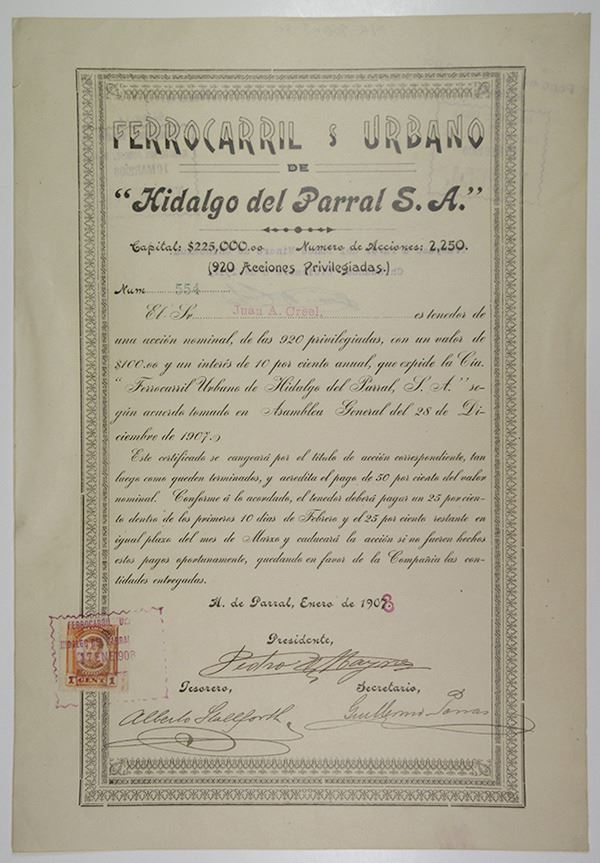 FERROCARRIL s URBANO
DE
"Hidalgo del Parral S. A."
Capital: $225,000.00 Numero de Acciones: 2,250.
(920 Acciones Privilegiadas.)
Num 554
El Sr. Juan A. Creel, es tenedor de
una acción nominal, de las 920 privilegiadas, con un valor de
$100.00 y un interés de 10 por ciento anual, que expide la Cía.
"Ferrocarril Urbano de Hidalgo del Parral, S. A." se-
gún acuerdo tomado en Asamblea General del 28 de Di-
ciembre de 1907.
Este certificado se cangeará por el título de acción correspondiente, tan
luego como queden terminados, y acredita el pago de 50 por ciento del valor
nominal. Conforme á lo acordado, el tenedor deberá pagar un 25 por cien-
to dentro de los primeros 10 días de Febrero y el 25 por ciento restante en
igual plazo del mes de Marzo y caducará la acción si no fueren hechos
estos pagos oportunamente, quedando en favor de la Compañía las can-
tidades entregadas.
H. de Parral, Enero de 1908
FERROCARRIL
HIDALGO DEL PARRAL
17 ENE 1908
1 CENT 1
Presidente,
Pedro
Tesorero, Secretario,
Alberto Stallforth Guillermo Porras